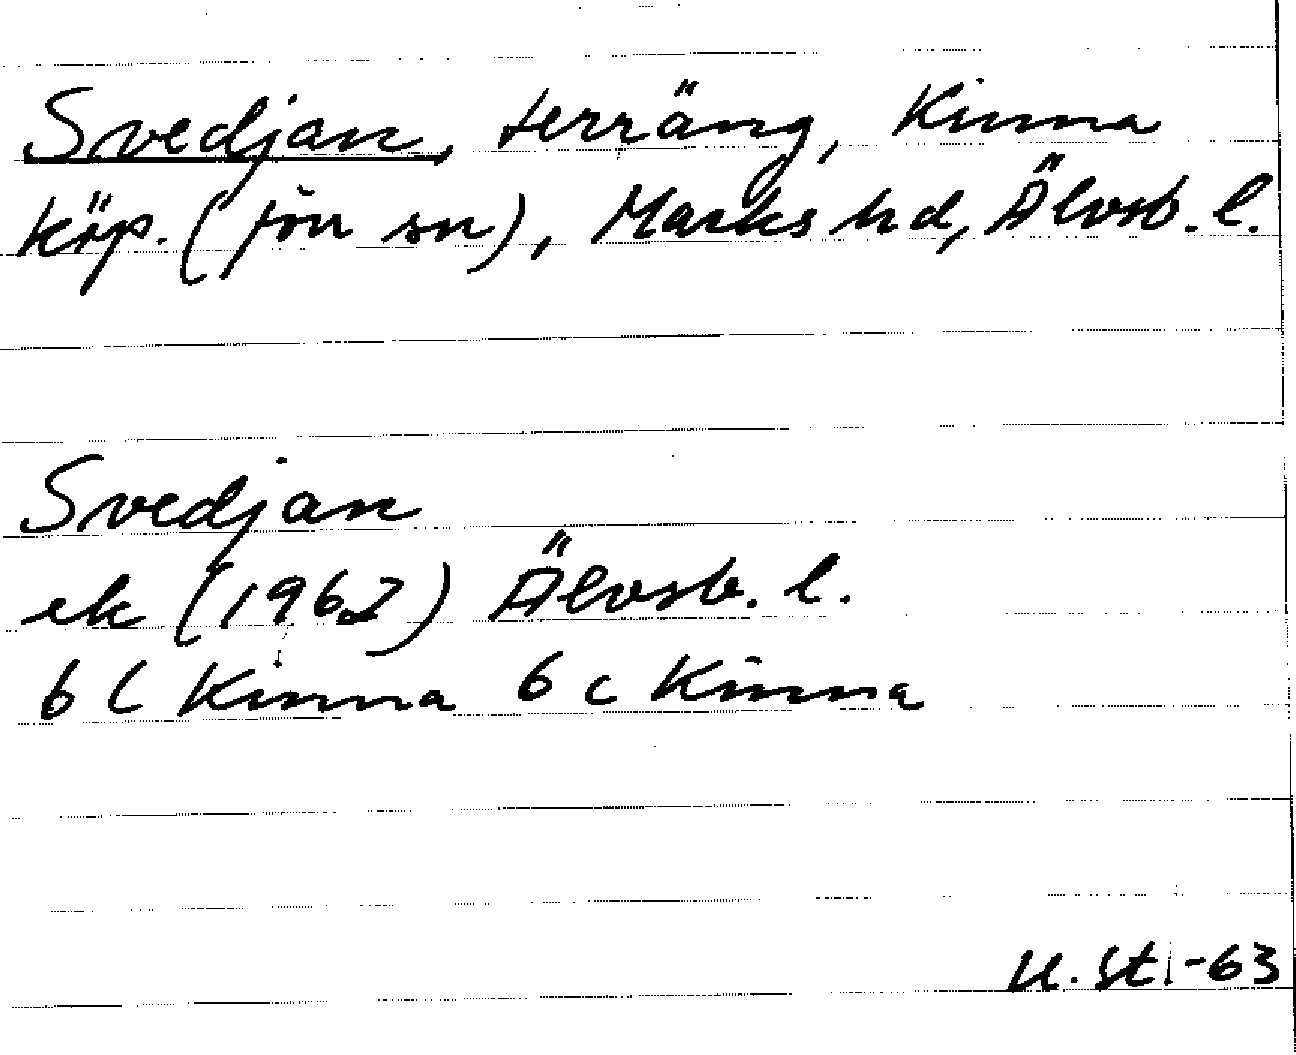 Svedjan, terräng, Kinna
köp. (fön sn), Marks hd, Älvsb. l.
Svedjan
ek (1962) Älvsb. l.
6 C Kinna 6 c Kinna
U. St. -63